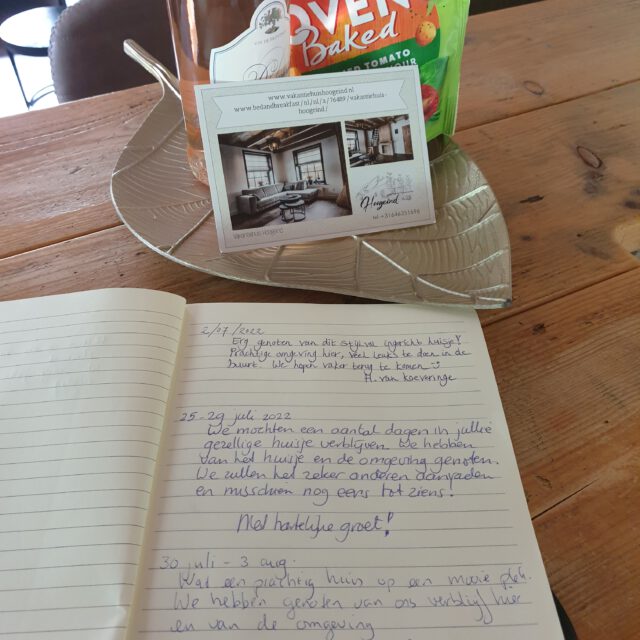 OVEN
Baked
TOMATO
www.vakantiehuishoogeind.nl
www.bedandbreakfast/nl/nl/a/76489/vakantiehuis-
hoogeind/
Hoogeind
Vakantiehuis Hoogeind
tel +31646351698
2/07/2022
Erg genoten van dit stijlvol ingericht huisje!
Prachtige omgeving hier, veel leuks te doen in de
buurt. We hopen vaker terug te komen
M. van Koeveringe
25-29 juli 2022
We mochten een aantal dagen in jullie
gezellige huisje verblijven. We hebben
van het huisje en de omgeving genoten.
We zullen het zeker anderen aanraden
en misschien nog eens tot ziens!
Met hartelijke groet!
30 juli - 3 aug.
Wat een prachtig huis op een mooie plek.
We hebben genoten van ons verblijf hier
en van de omgeving